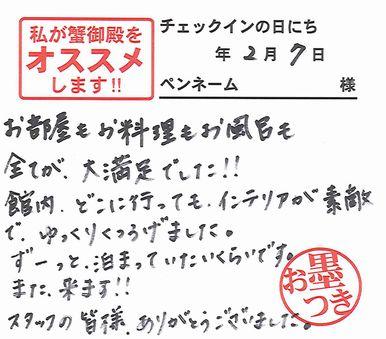 私が蟹御殿を
オススメ
します!!
チェックインの日にち
年 2月 7日
ペンネーム 様
お部屋もお料理もお風呂も
全てが、大満足でした!!
館内、どこに行っても、インテリアが素敵
で、ゆっくりくつろげました。
ずーっと、泊まっていたいくらいです。
また、来ます!!
スタッフの皆様、ありがとうございました。
お墨つき